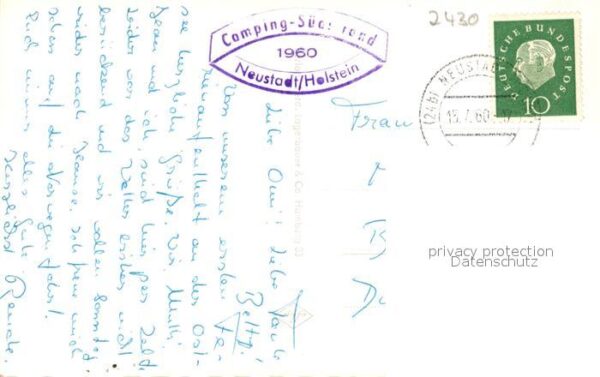 2430
Camping-Süds rand
1960
Neustadt/Holstein
DEUTSCHE BUNDESPOST
10
(24b) NEUSTADT
15.7.60
Frau
B
privacy protection
Datenschutz
Liebe Omi! Liebe Tante
Betty!
Von unserem ersten Fe-
rienaufenthalt an der Ost-
see herzliche Grüße. Wir, Mutti,
Jean und ich, sind hier per Zelt.
Leider war das Wetter bisher nicht
berückend und wir wollen Sonntag
wieder nach Hause. Ich freue mich
schon auf die Norwegenfahrt.
Euch immer alles Gute
Herzlichst Renate.